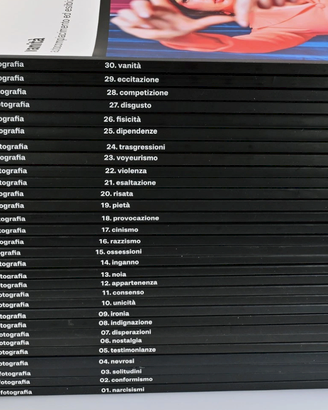 anità
ografia 30. vanità
ografia 29. eccitazione
ografia 28. competizione
otografia 27. disgusto
ografia 26. fisicità
ografia 25. dipendenze
tografia 24. trasgressioni
ografia 23. voyeurismo
ografia 22. violenza
ografia 21. esaltazione
ografia 20. risata
ografia 19. pietà
ografia 18. provocazione
ografia 17. cinismo
ografia 16. razzismo
ografia 15. ossessioni
tografia 14. inganno
otografia 13. noia
otografia 12. appartenenza
otografia 11. consenso
otografia 10. unicità
otografia 09. ironia
otografia 08. indignazione
otografia 07. disperazioni
otografia 06. nostalgia
otografia 05. testimonianze
otografia 04. nevrosi
fotografia 03. solitudini
fotografia 02. conformismo
fotografia 01. narcisismi